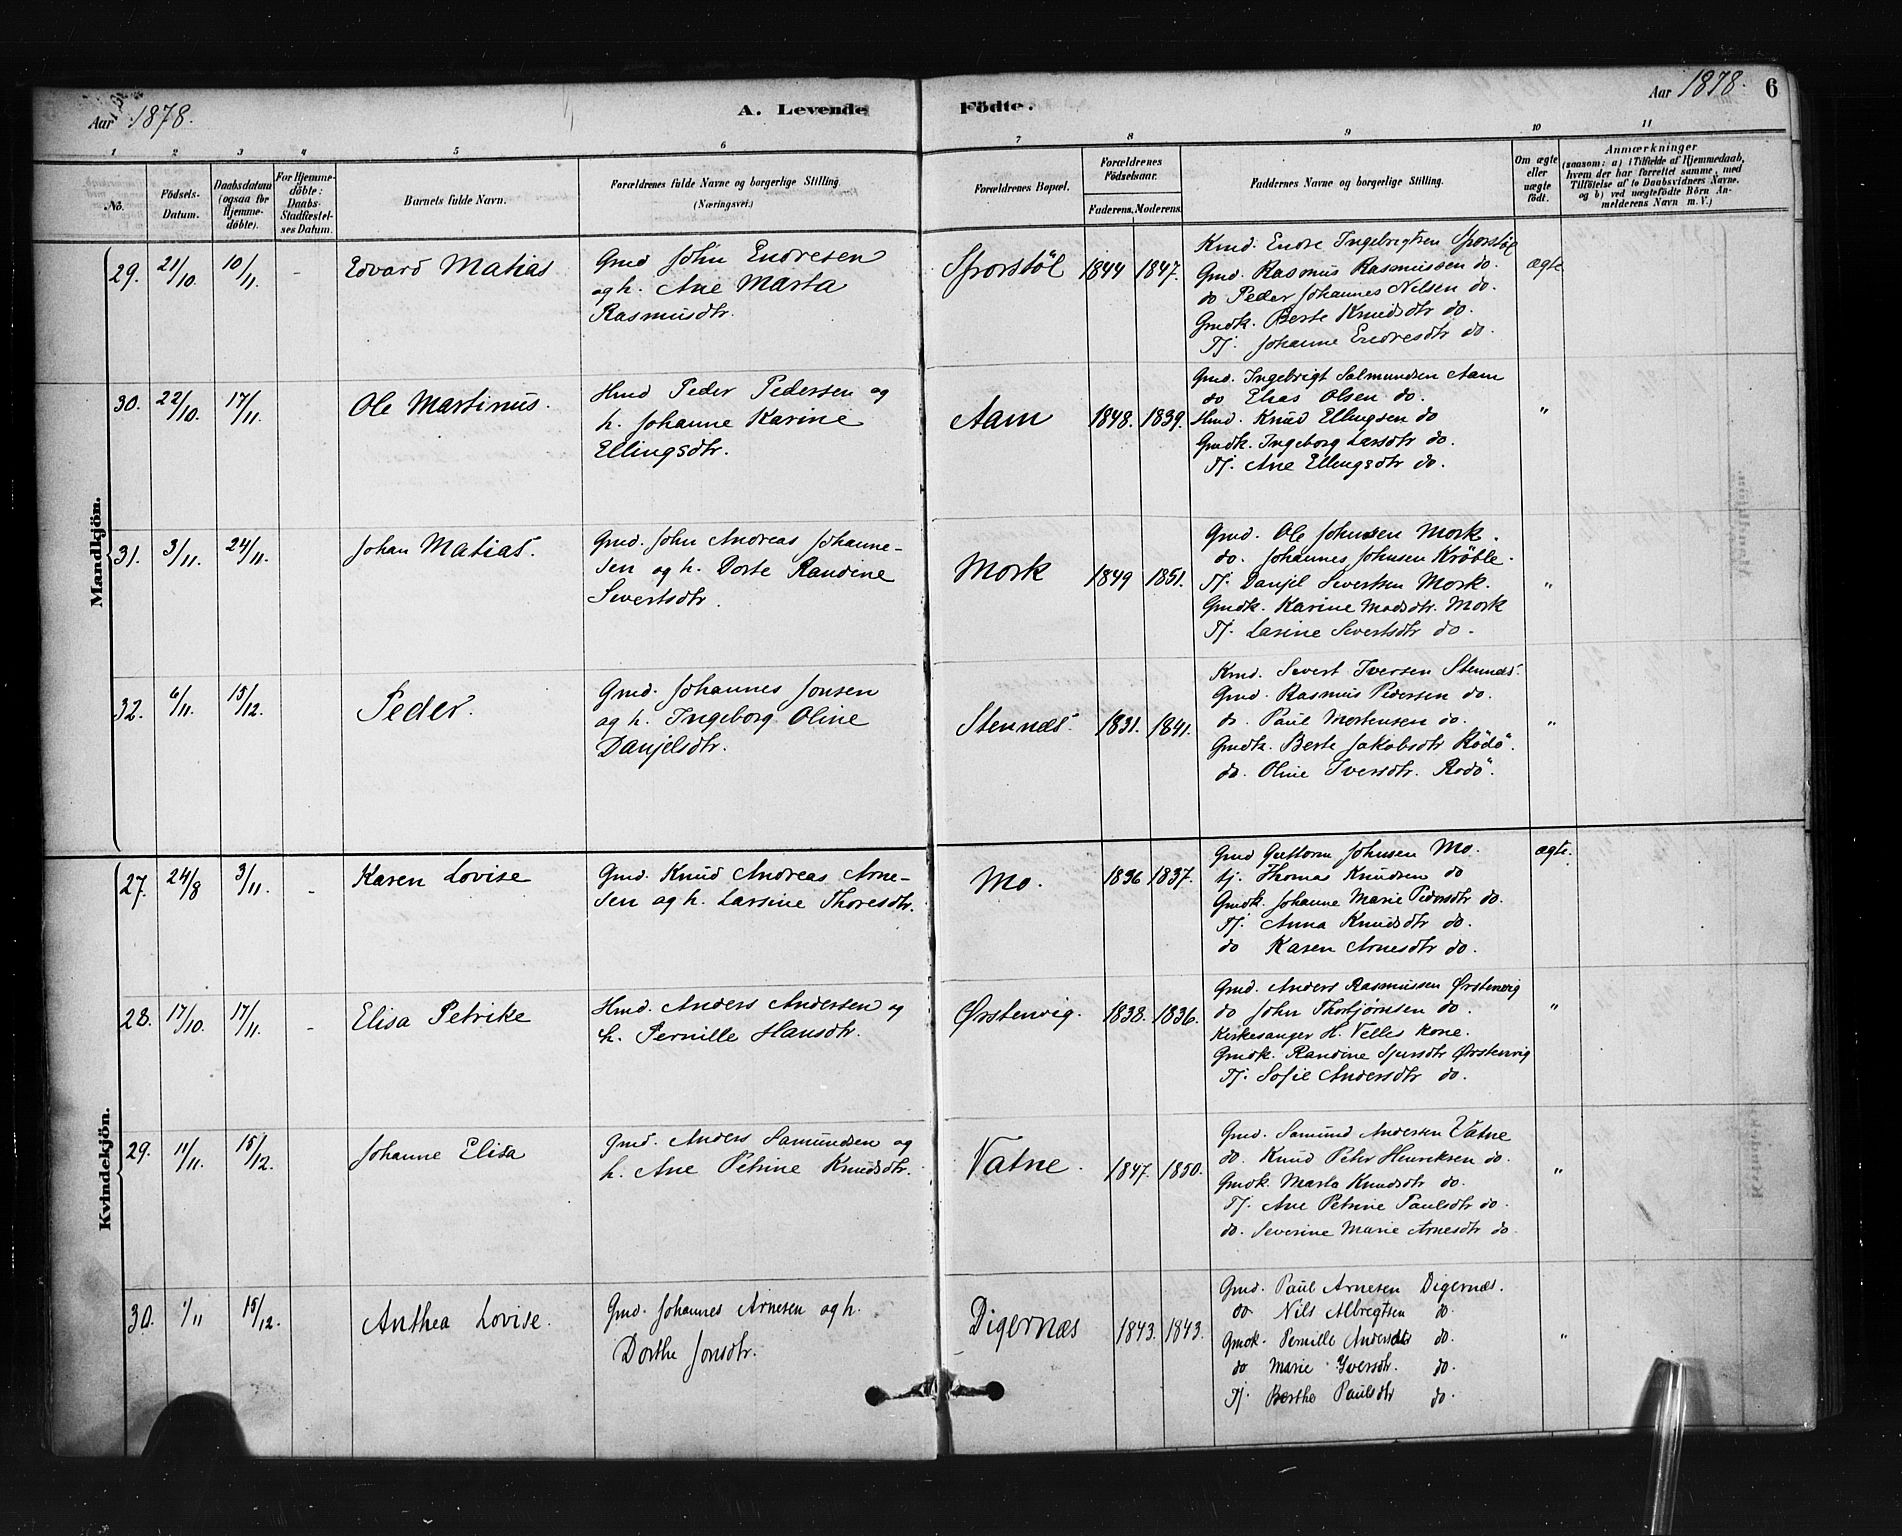 Aar 1878.
A. Levende Födte.
Aar 1878. 6
1 2 3 4 5 6 7 8 9 10 11
No.
Födsels-Datum.
Daabsdatum (ogsaa for Hjemme-döbte).
For Hjemme-döbte: Daabs-Stadfæstel-ses Datum.
Barnets fulde Navn.
Forældrenes fulde Navne og borgerlige Stilling. (Næringsvei.)
Forældrenes Bopæl.
Forældrenes Födselsaar.
Faderens. Moderens.
Faddernes Navne og borgerlige Stilling.
Om ægte eller uægte födt.
Anmærkninger
(saasom: a) i Tilfælde af Hjemmedaab, hvem der har forrettet samme, med Tilföielse af to Daabsvidners Navne, og b) ved uægtefödte Börn An-melderens Navn m. V.)
Mandkjön.
29. 21/10. 10/11. - Edvard Matias
Gmd John Endresen
og h. Ane Marta
Rasmusdtr.
Sporstöl 1844 1847.
Kmd. Endre Ingebrigtsen Sporstöl
Gmd. Rasmus Rasmussen do.
do Peder Johannes Nilsen do.
Gmdk. Berte Knudsdtr do.
Tj. Johanne Endresdtr do.
ægte
30. 22/10. 17/11. Ole Martinus.
Hmd Peder Pedersen og
h. Johanne Karine
Ellingsdtr.
Aam 1848. 1839.
Gmd. Ingebrigt Salmundsen Aam
do Elias Olsen do.
Hmd. Knud Ellingsen do
Gmdk. Ingeborg Larsdtr do.
Tj. Ane Ellingsdtr do.
"
31. 3/11. 24/11. Johan Matias.
Gmd. John Andreas Johanne-
sen og h. Dorte Randine
Sivertsdtr.
Mork 1849 1851.
Gmd. Ole Johnsen Mork.
do. Johannes Johnsen Kröble.
Tj. Danjel Sivertsen Mork.
Gmdk. Karine Madsdtr. Mork
Tj. Larine Sivertsdtr do.
"
32. 6/11. 15/12. Peder.
Gmd. Johannes Jonsen
og h. Ingeborg Oline
Danjelsdtr.
Stennæs. 1831. 1841.
Kmd. Sivert Iversen Stennæs.
Gmd. Rasmus Pedersen do.
do. Paul Mortensen do.
Gmdk. Berte Jakobsdtr Rödö.
do. Oline Iversdtr. Rödö.
"
Kvindekjön.
27. 24/8 3/11. - Karen Lovise
Gmd. Knud Andreas Arne-
sen og h. Larsine Thoresdtr.
Mo. 1836 1837.
Gmd Guttorm Johnsen Mo.
tj. Thomas Knudsen do
Gmdk. Johanne Marie Pedersdtr do.
Tj. Anna Knudsdtr do.
do Karen Arnesdtr do.
ægte.
28. 17/10. 17/11. - Elisa Petrike
Hmd. Anders Andersen og
h. Pernille Hansdtr.
Ørstenvig. 1838. 1836.
Gmd. Anders Rasmussen Ørstenvig
do John Thorbjørnsen do.
Kirkesanger H. Velles kone.
Gmdk. Randine Sjursdtr Ørstenvig
Tj. Sofie Andersdtr do.
"
29. 11/11. 15/12. Johanne Elisa
Gmd. Anders Samundsen og
h. Ane Petrine Knudsdtr.
Vatne. 1847. 1850.
Gmd. Samund Andersen Vatne
do. Knud Peter Henriksen do.
Gmdk. Marta Knudsdtr do.
Tj. Ane Petrine Paulsdtr do.
do. Severine Marie Arnesdtr do.
"
30. 1/11 15/12. Anthea Lovise.
Gmd. Johannes Arnesen og h.
Dorthe Jonsdtr.
Digernæs 1843. 1843.
Gmd. Paul Arnesen Digernæs.
do Nils Albregtsen do.
Gmdk. Pernille Andersdtr do.
do Marie Iversdtr. do.
Tj Berthe Paulsdtr do.
"